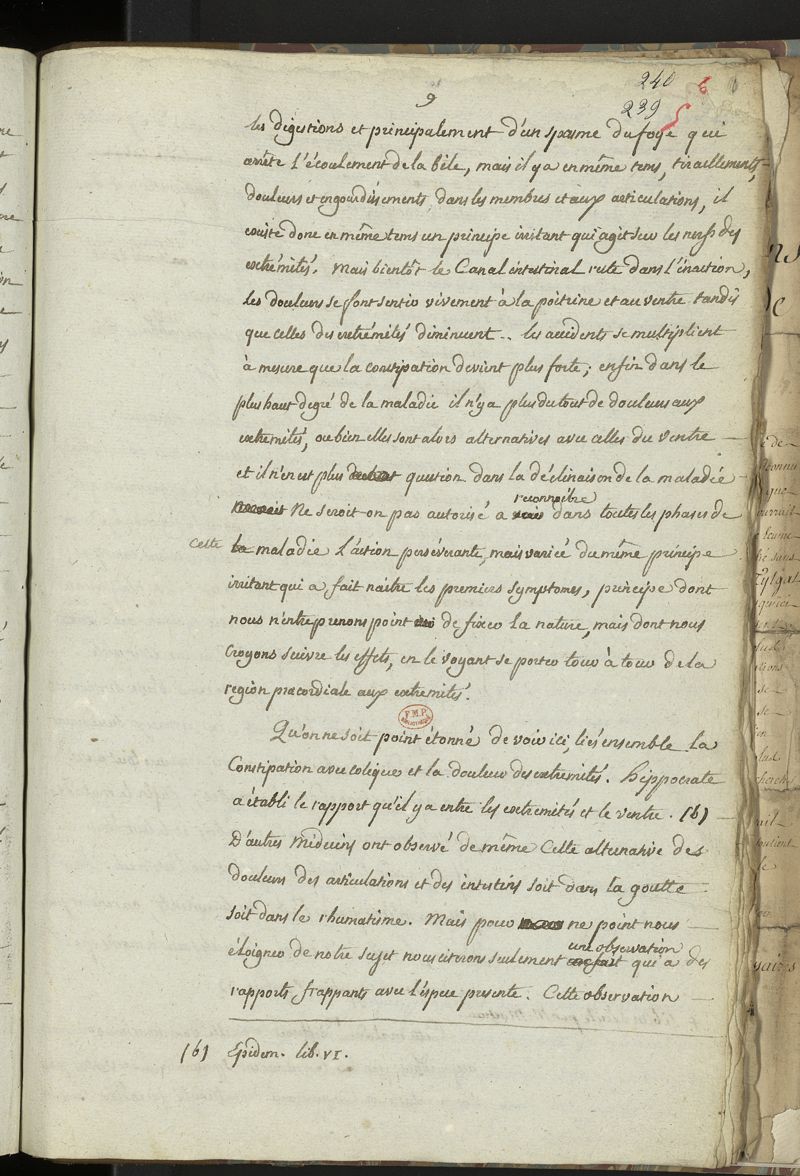 240
9
239
les digestions et principalement d'un spasme du foye qui
arrête l'écoulement de la bile, mais il y a en même tems, tiraillements,
douleurs et engourdissements, dans les membres et aux articulations, il
existe donc en même tems un principe irritant qui agit sur les nerfs des
extrémités. Mais bientôt le Canal intestinal reste dans l'inaction,
les douleurs se font sentir vivement à la poitrine et au ventre tandis
que celles des extrémités diminuent .. les accidents se multiplient
à mesure que la constipation devient plus forte; enfin dans le
plus haut degré de la maladie il n'y a plus du tout de douleurs aux
extrémités, ou bien elles sont alors alternatives avec celles du ventre
et il n'en est plus question dans la déclinaison de la maladie
reconnoître
Ne seroit on pas autorisé a dans toutes les phases de
Cette la maladie l'action perséverante, mais variée du même principe
irritant qui a fait naitre les premiers symptomes, principe dont
nous n'entreprenons point de fixer la nature, mais dont nous
Croyons suivre les effets, en le voyant se porter tour à tour de la
region præcordiale aux extrémités.
F.M.P.
BIBLIOTHÈQUE
Qu'on ne soit point étonné de voir ici, liés ensemble la
Constipation avec colique et la douleur des extrémités. hippocrate
a établi le rapport qu'il y a entre les extrémités et le ventre. (b)
D'autres Médecins ont observé de même Cette alternative des
douleurs des articulations et des intestins soit dans la goutte
soit dans le rhumatisme. Mais pour ne point nous
une observation
éloigner de notre sujet nous citerons seulement un fait qui a des
rapports frappants avec l'espece presente. Cette observation
(b) Epidem. lib. VI.